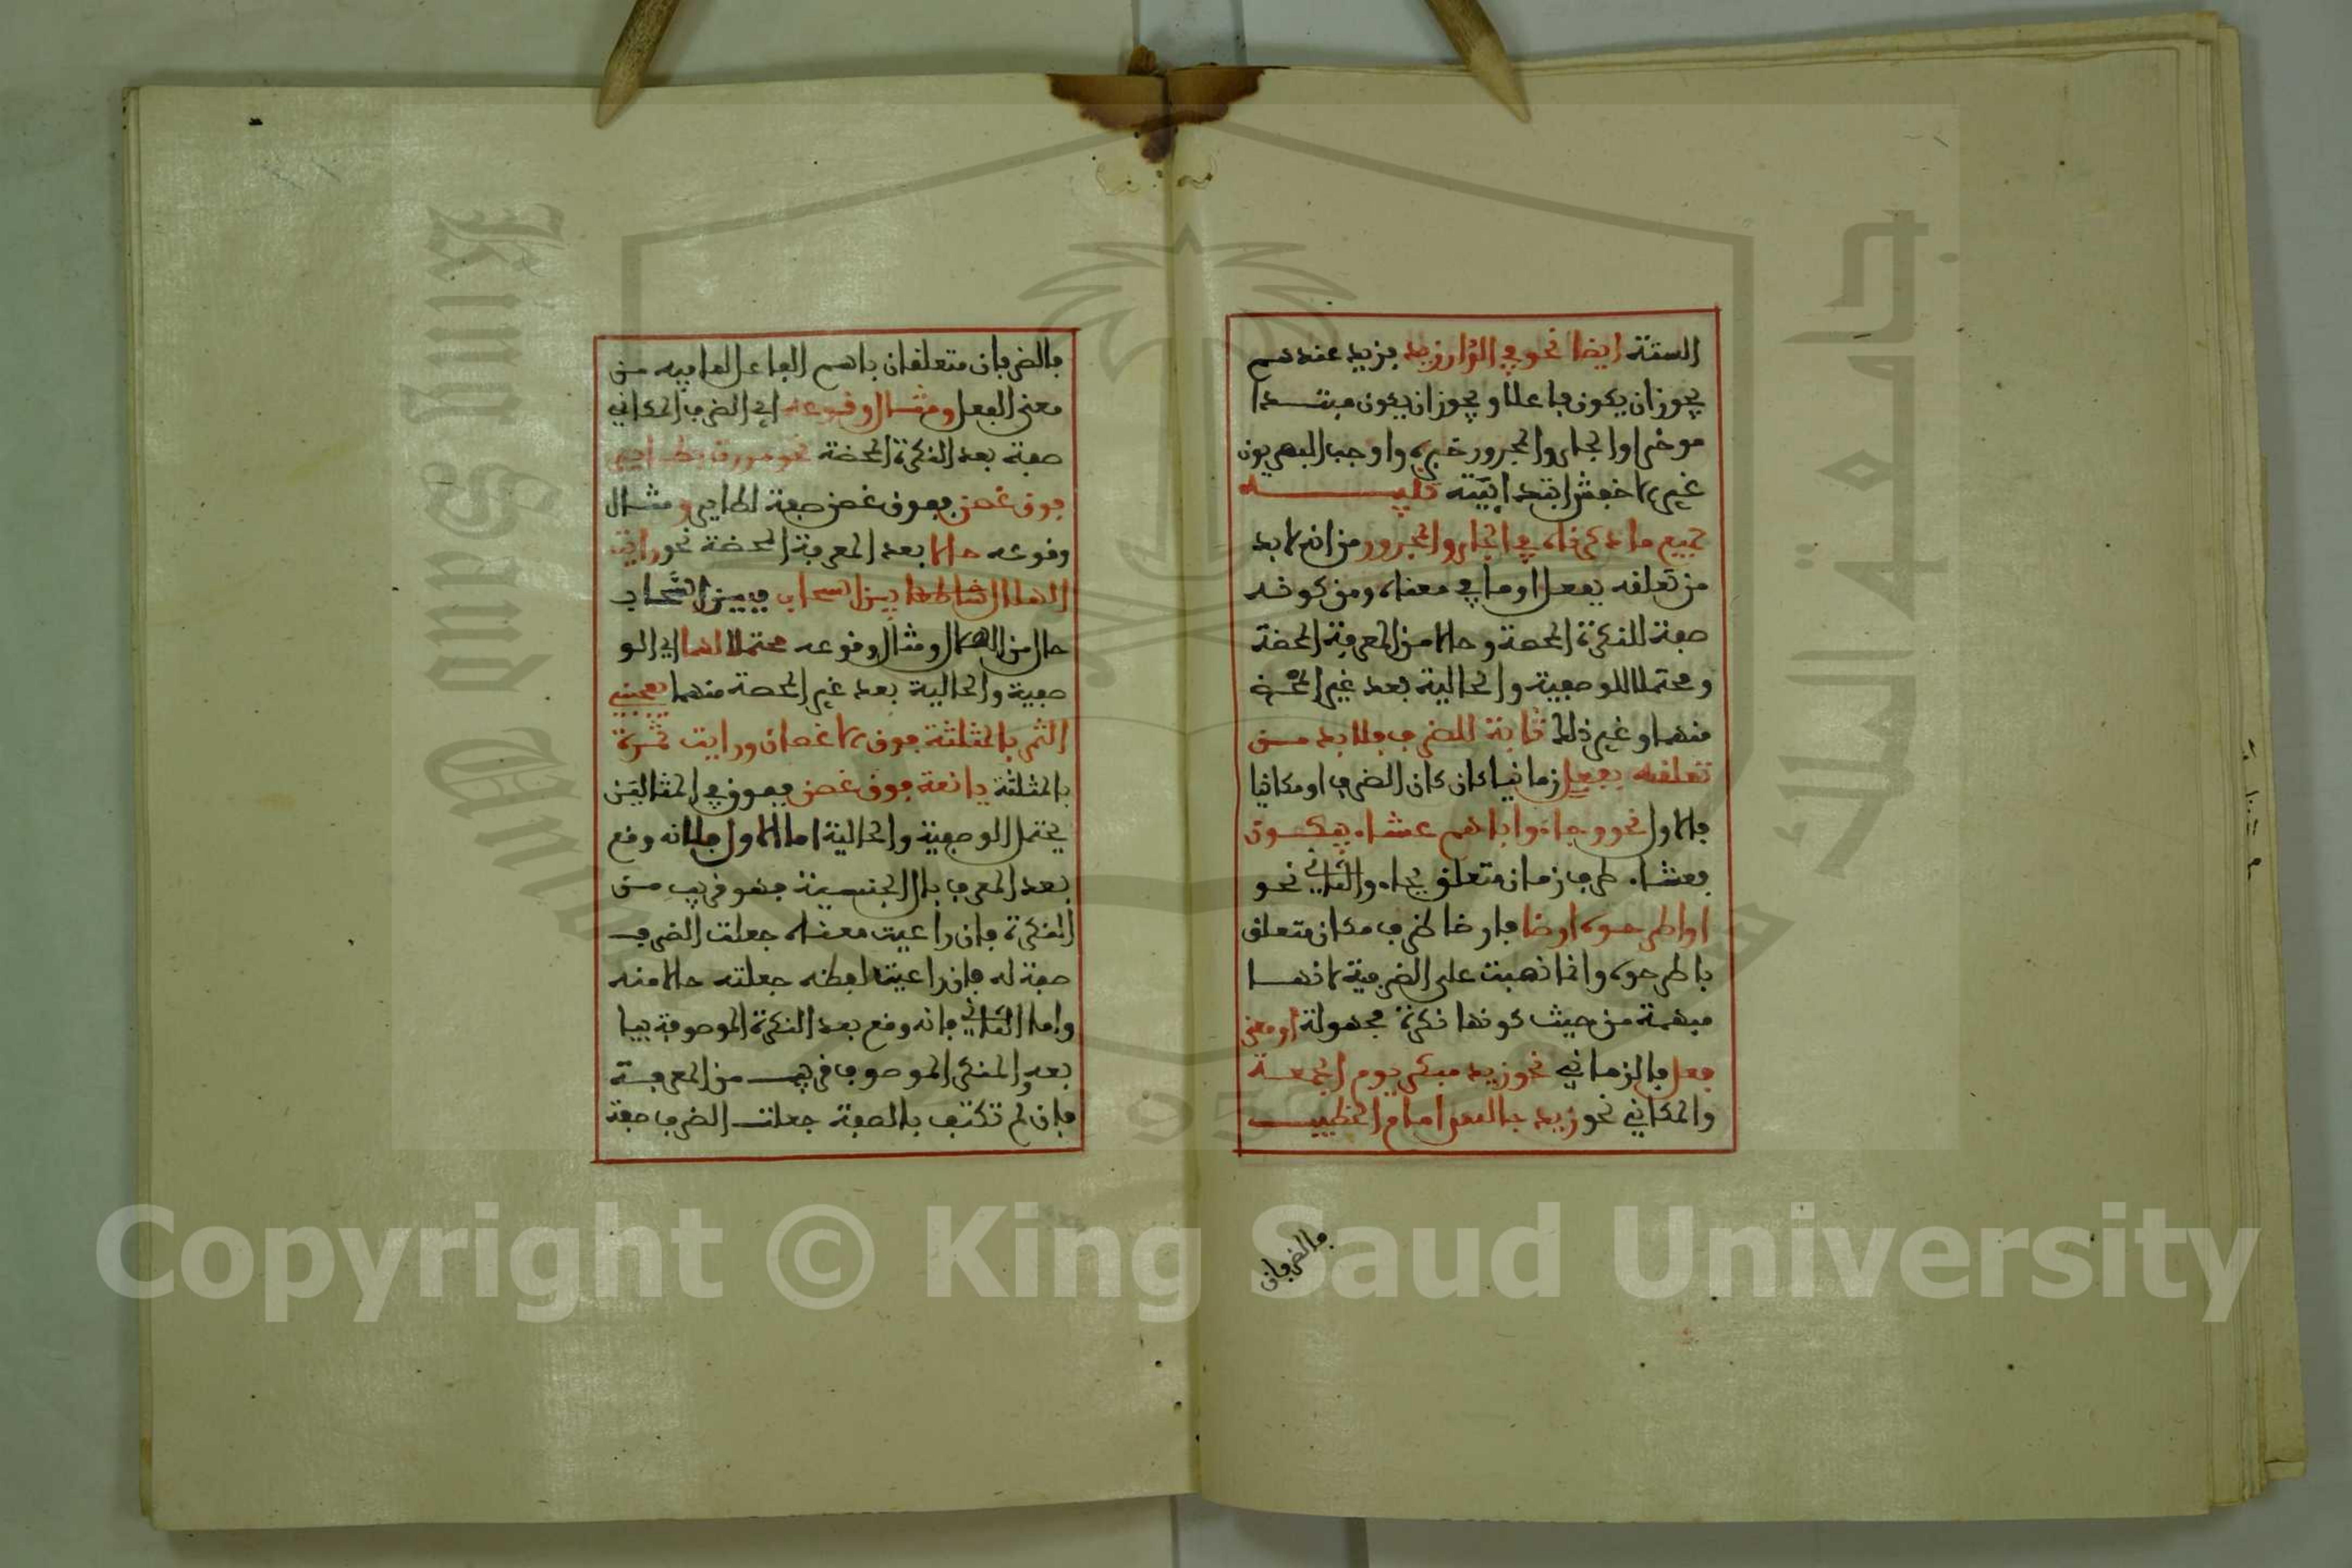 الستة ايضا نحو في الدار زيد فزيد عندهم
يجوز ان يكون فاعلا ويجوز ان يكون مبتدا
موخرا والجار والمجرور خبره واوجب البصريون
غير الاخفش ابتدائيته تنبيه
جميع ما ذكرناه في الجار والمجرور من انه لا بد
من تعلقه بفعل او ما في معناه ومن كونه
صفة للنكرة المحضة وحالا من المعرفة المحضة
ومحتملا للوصفية والحالية بعد غير المحضة
منهما وغير ذلك ثابتة للضرف فلا بد من
تعلقه بفعل زمانيا كان كان الضرف او مكانيا
فالاول نحو وجاءوا اباهم عشاء يبكون
فعشاء ظرف زمان متعلق بجاء والثاني نحو
او اطرحوه ارضا فارضا ظرف مكان متعلق
باطرحوه وانما نصبت على الضرفية لانها
مبهمة من حيث كونها نكرة مجهولة او معنى
فعل فالزماني نحو زيد مبكر يوم الجمعة
والمكاني نحو زيد جالس امام الخطيب
فالضرفان
فالضرفان متعلقان باسم الفاعل لما فيه من
معنى الفعل ومثال وقوعه اي الضرف المكاني
صفة بعد النكرة المحضة نحو مررت بطاير
فوق غصن ففوق غصن صفة لطاير ومثال
وقوعه حالا بعد المعرفة المحضة نحو رايت
الهلال بين السحاب فبين السحاب
حال من الهلال ومثال وقوعه محتملا لهما اي الو
صفية والحالية بعد غير المحضة منهما يعجبني
الثمر بالمثلثة فوق الاغصان ورايت ثمرة
بالمثلثة يانعة فوق غصن ففوق في المثالين
يحتمل الوصفية والحالية اما الاول فلانه وقع
بعد المعرف بال الجنسية فهو قريب من
النكرة فان راعيت معناه جعلت الضرف
صفة له فان راعيت لفظه جعلته حالا منه
واما الثاني فانه وقع بعد النكرة الموصوفة بيا
بعد والمنكر الموصوف قريب من المعرفة
فان لم تكتف بالصفة جعلت الضرف صفة
Copyright © King Saud University